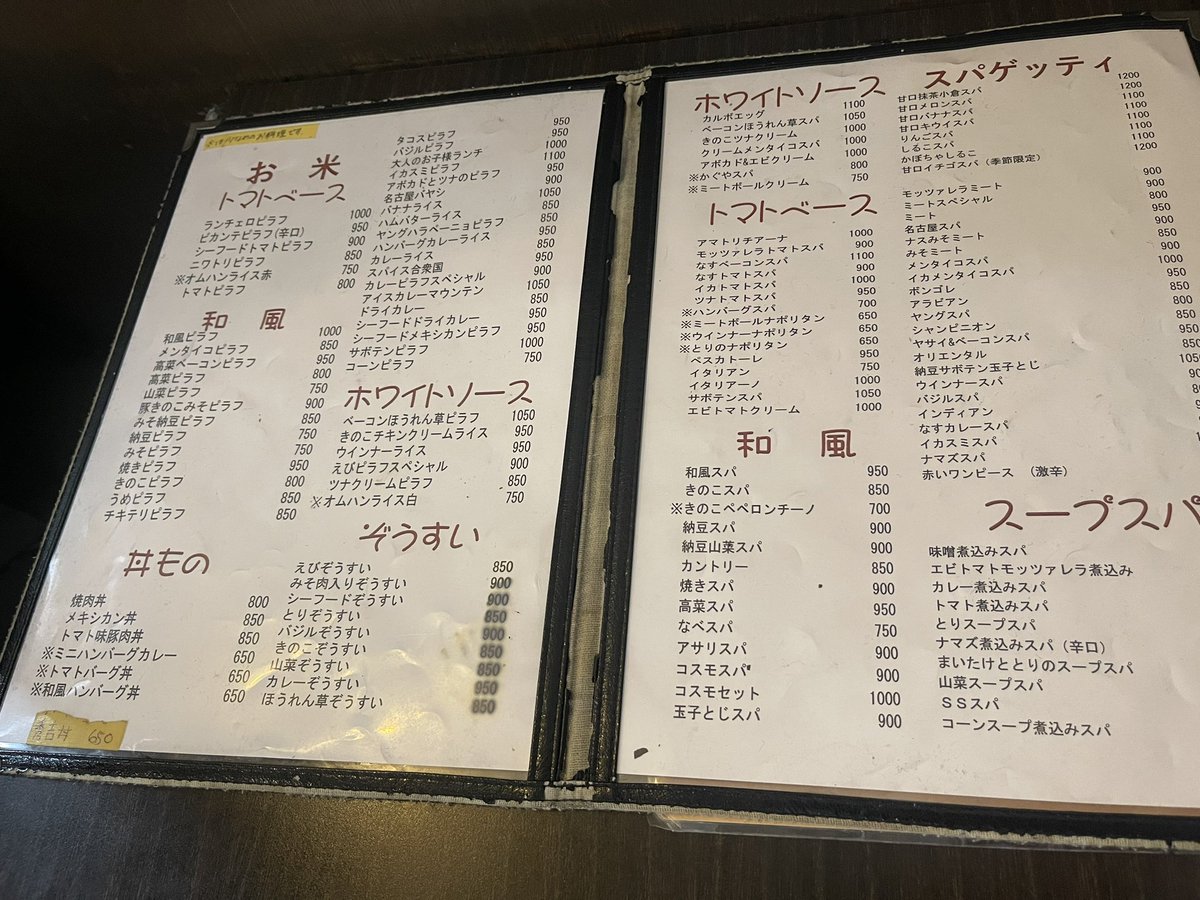 お米
トマトベース
ランチェロピラフ 1000
ピカンテピラフ(辛口) 950
シーフードトマトピラフ 900
ニワトリピラフ 850
※オムハンライス赤 750
トマトピラフ 800
和風
和風ピラフ 1000
メンタイコピラフ 850
高菜ベーコンピラフ 950
高菜ピラフ 800
山菜ピラフ 750
豚きのこみそピラフ 900
みそ納豆ピラフ 850
納豆ピラフ 750
みそピラフ 750
焼きピラフ 950
きのこピラフ 800
うめピラフ 850
チキテリピラフ 850
丼もの
焼肉丼 800
メキシカン丼 850
トマト味豚肉丼 850
※ミニハンバーグカレー 650
※トマトバーグ丼 650
※和風ハンバーグ丼 650
丼 650
タコスピラフ
バジルピラフ
大人のお子様ランチ
イカスミピラフ
アボカドとツナのピラフ
名古屋バヤシ
バナナライス
ハムバターライス
ヤングハラペーニョピラフ
ハンバーグカレーライス
カレーライス
スパイス合衆国
カレーピラフスペシャル
アイスカレーマウンテン
ドライカレー
シーフードドライカレー
シーフードメキシカンピラフ
サボテンピラフ
コーンピラフ
ホワイトソース
ベーコンほうれん草ピラフ 1050
きのこチキンクリームライス 950
ウインナーライス 950
えびピラフスペシャル 900
ツナクリームピラフ 850
※オムハンライス白 750
ぞうすい
えびぞうすい 850
みそ肉入りぞうすい 900
シーフードぞうすい 900
とりぞうすい 850
バジルぞうすい 900
きのこぞうすい 850
山菜ぞうすい 850
カレーぞうすい 950
ほうれん草ぞうすい 850
スパゲッティ
ホワイトソース
カルボエッグ 1100
ベーコンほうれん草スパ 1050
きのこツナクリーム 1000
クリームメンタイコスパ 1000
アボカド&エビクリーム 1100
※かぐやスパ 800
※ミートボールクリーム 750
トマトベース
アマトリチアーナ 1000
モッツァレラトマトスパ 900
なすベーコンスパ 1100
なすトマトスパ 900
イカトマトスパ 1000
ツナトマトスパ 950
※ハンバーグスパ 700
※ミートボールナポリタン 650
※ウインナーナポリタン 650
※とりのナポリタン 650
ペスカトーレ 950
イタリアン 850
イタリアーノ 1000
サボテンスパ 1050
エビトマトクリーム 1000
和風
和風スパ 950
きのこスパ 850
※きのこペペロンチーノ 700
納豆スパ 900
納豆山菜スパ 900
カントリー 850
焼きスパ 900
高菜スパ 950
なべスパ 750
アサリスパ 900
コスモスパ 900
コスモセット 1000
玉子とじスパ 900
甘口抹茶小倉スパ
甘口メロンスパ
甘口バナナスパ
甘口キウイスパ
りんごスパ
しるこスパ
かぼちゃしるこ
甘口イチゴスパ(季節限定)
モッツァレラミート
ミートスペシャル
ミート
名古屋スパ
ナスみそミート
みそミート
メンタイコスパ
イカメンタイコスパ
ボンゴレ
アラビアン
ヤングスパ
シャンピニオン
ヤサイ&ベーコンスパ
オリエンタル
納豆サボテン玉子とじ
ウインナースパ
バジルスパ
インディアン
なすカレースパ
イカスミスパ
ナマズスパ
赤いワンピース (激辛)
スープスパ
味噌煮込みスパ
エビトマトモッツァレラ煮込み
カレー煮込みスパ
トマト煮込みスパ
とりスープスパ
ナマズ煮込みスパ(辛口)
まいたけととりのスープスパ
山菜スープスパ
SSスパ
コーンスープ煮込みスパ